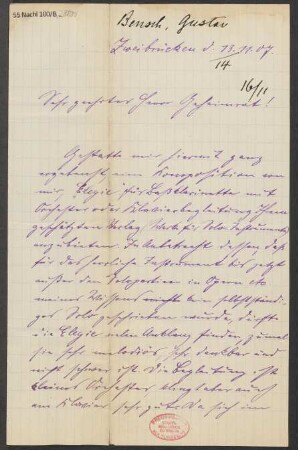 55 Nachl 100/B,
Bensch, Gustav
Zweibrücken d. 13.11.07.
14
16/11
Sehr geehrter Herr Geheimrat!
Gestatte mir hiermit ganz
ergebenst eine Komposition von
mir, Elegie für Baßklarinette mit
Orchester oder Klavierbegleitung Ihrem
geschätzten Verlag
anzubieten. In Anbetracht dessen daß
für das herrliche Instrument bis jetzt
außer den Solopartien in Opern etc
meines Wissens nicht ein selbstständi-
ges Solo geschrieben wurde, dürfte
die Elegie vielen Anklang finden, zumal
sie sehr melodiös, sehr dankbar und
nicht schwer ist. Die Begleitung ist
kleines Orchester, klingt aber auch
am Klavier sehr gut. Da sich im